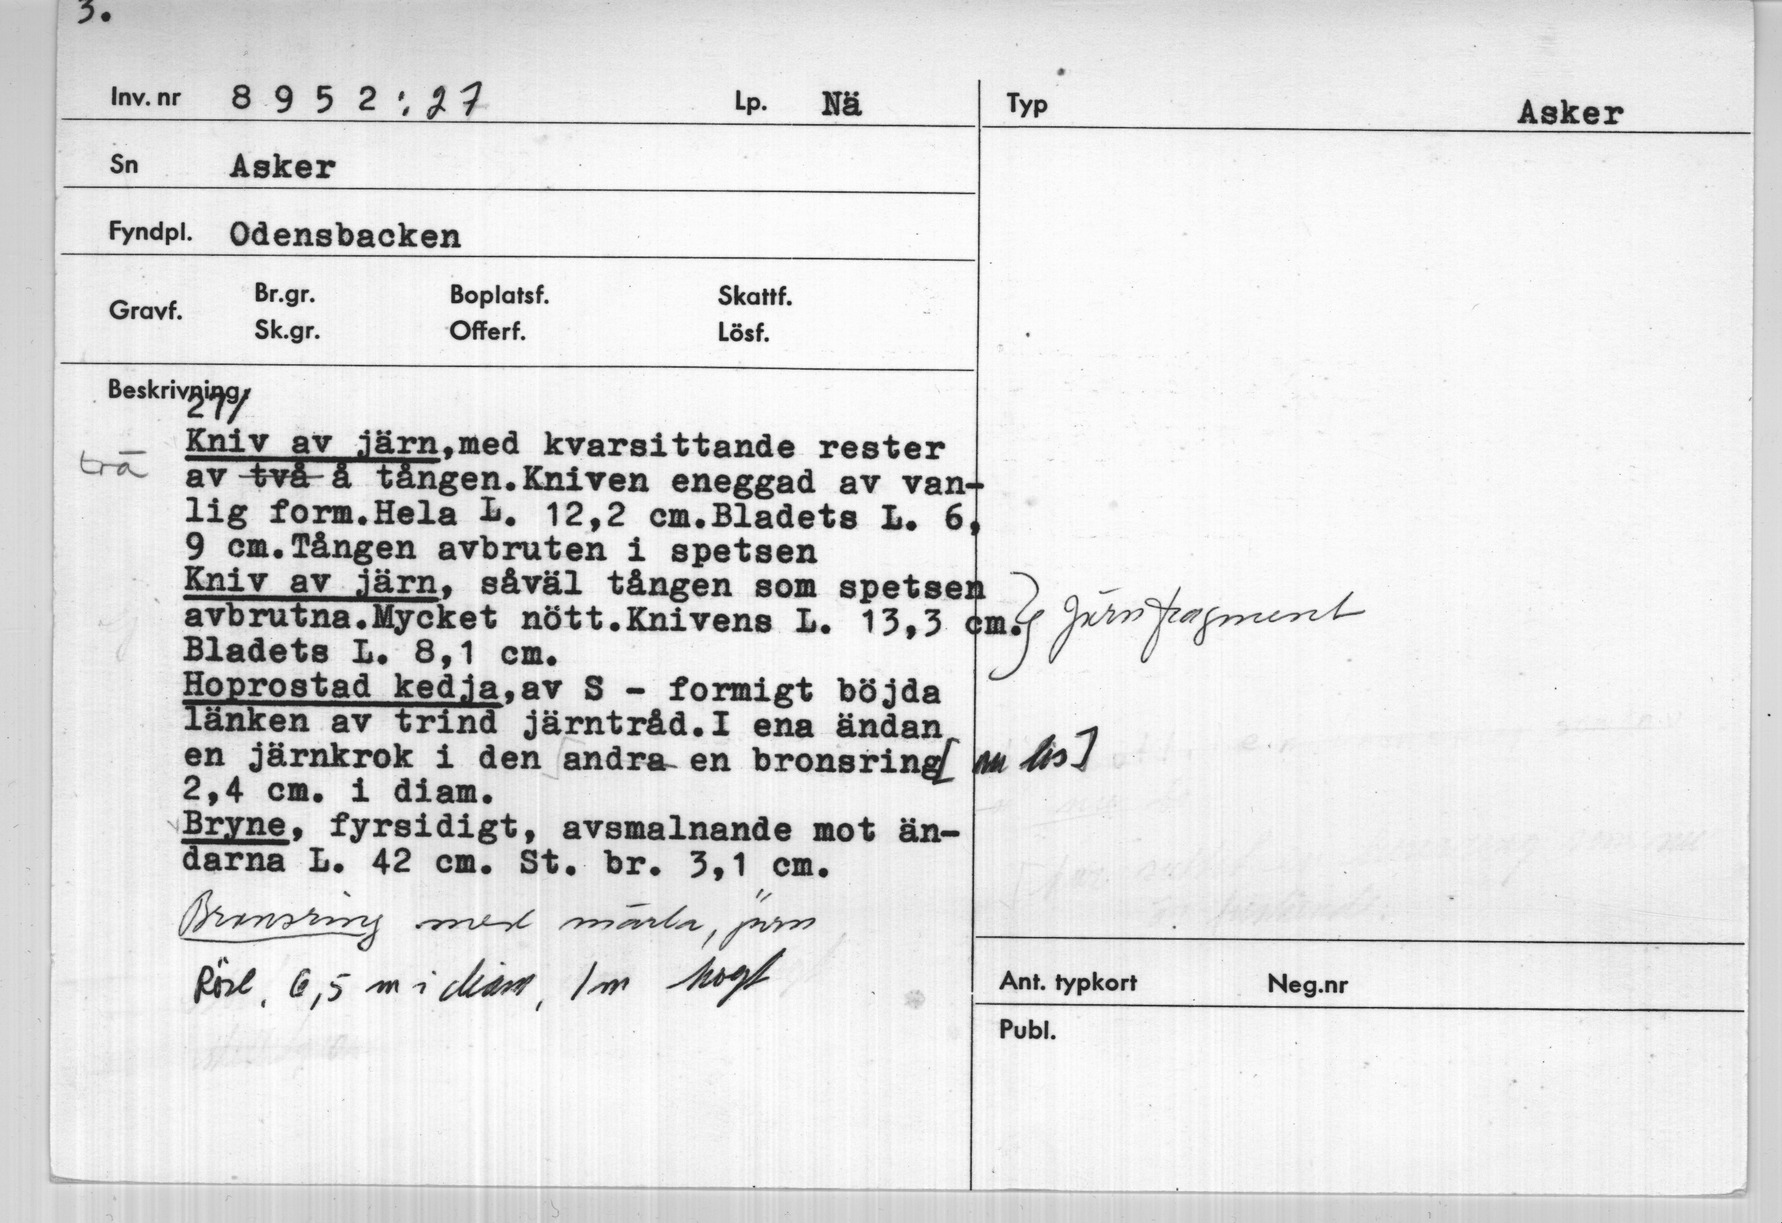 3.
Inv. nr 8 9 5 2 :, 27 Lp. Nä Typ Asker
Sn Asker
Fyndpl. Odensbacken
Gravf. Br.gr. Boplatsf. Skattf.
Sk.gr. Offerf. Lösf.
Beskrivning:
27/
Kniv av järn,med kvarsittande rester
trä
av två å tången.Kniven eneggad av van-
lig form.Hela L. 12,2 cm.Bladets L. 6,
9 cm.Tången avbruten i spetsen
Kniv av järn, såväl tången som spetsen
avbrutna.Mycket nött.Knivens L. 13,3 cm. } Järnfragment
Bladets L. 8,1 cm.
Hoprostad kedja,av S - formigt böjda
länken av trind järntråd.I ena ändan
en järnkrok i den [andra en bronsring[ nu lös]
2,4 cm. i diam.
Bryne, fyrsidigt, avsmalnande mot än-
darna L. 42 cm. St. br. 3,1 cm.
Bronsring med märla, järn
Röse, 6,5 m i diam, 1 m högt
Ant. typkort Neg.nr
Publ.